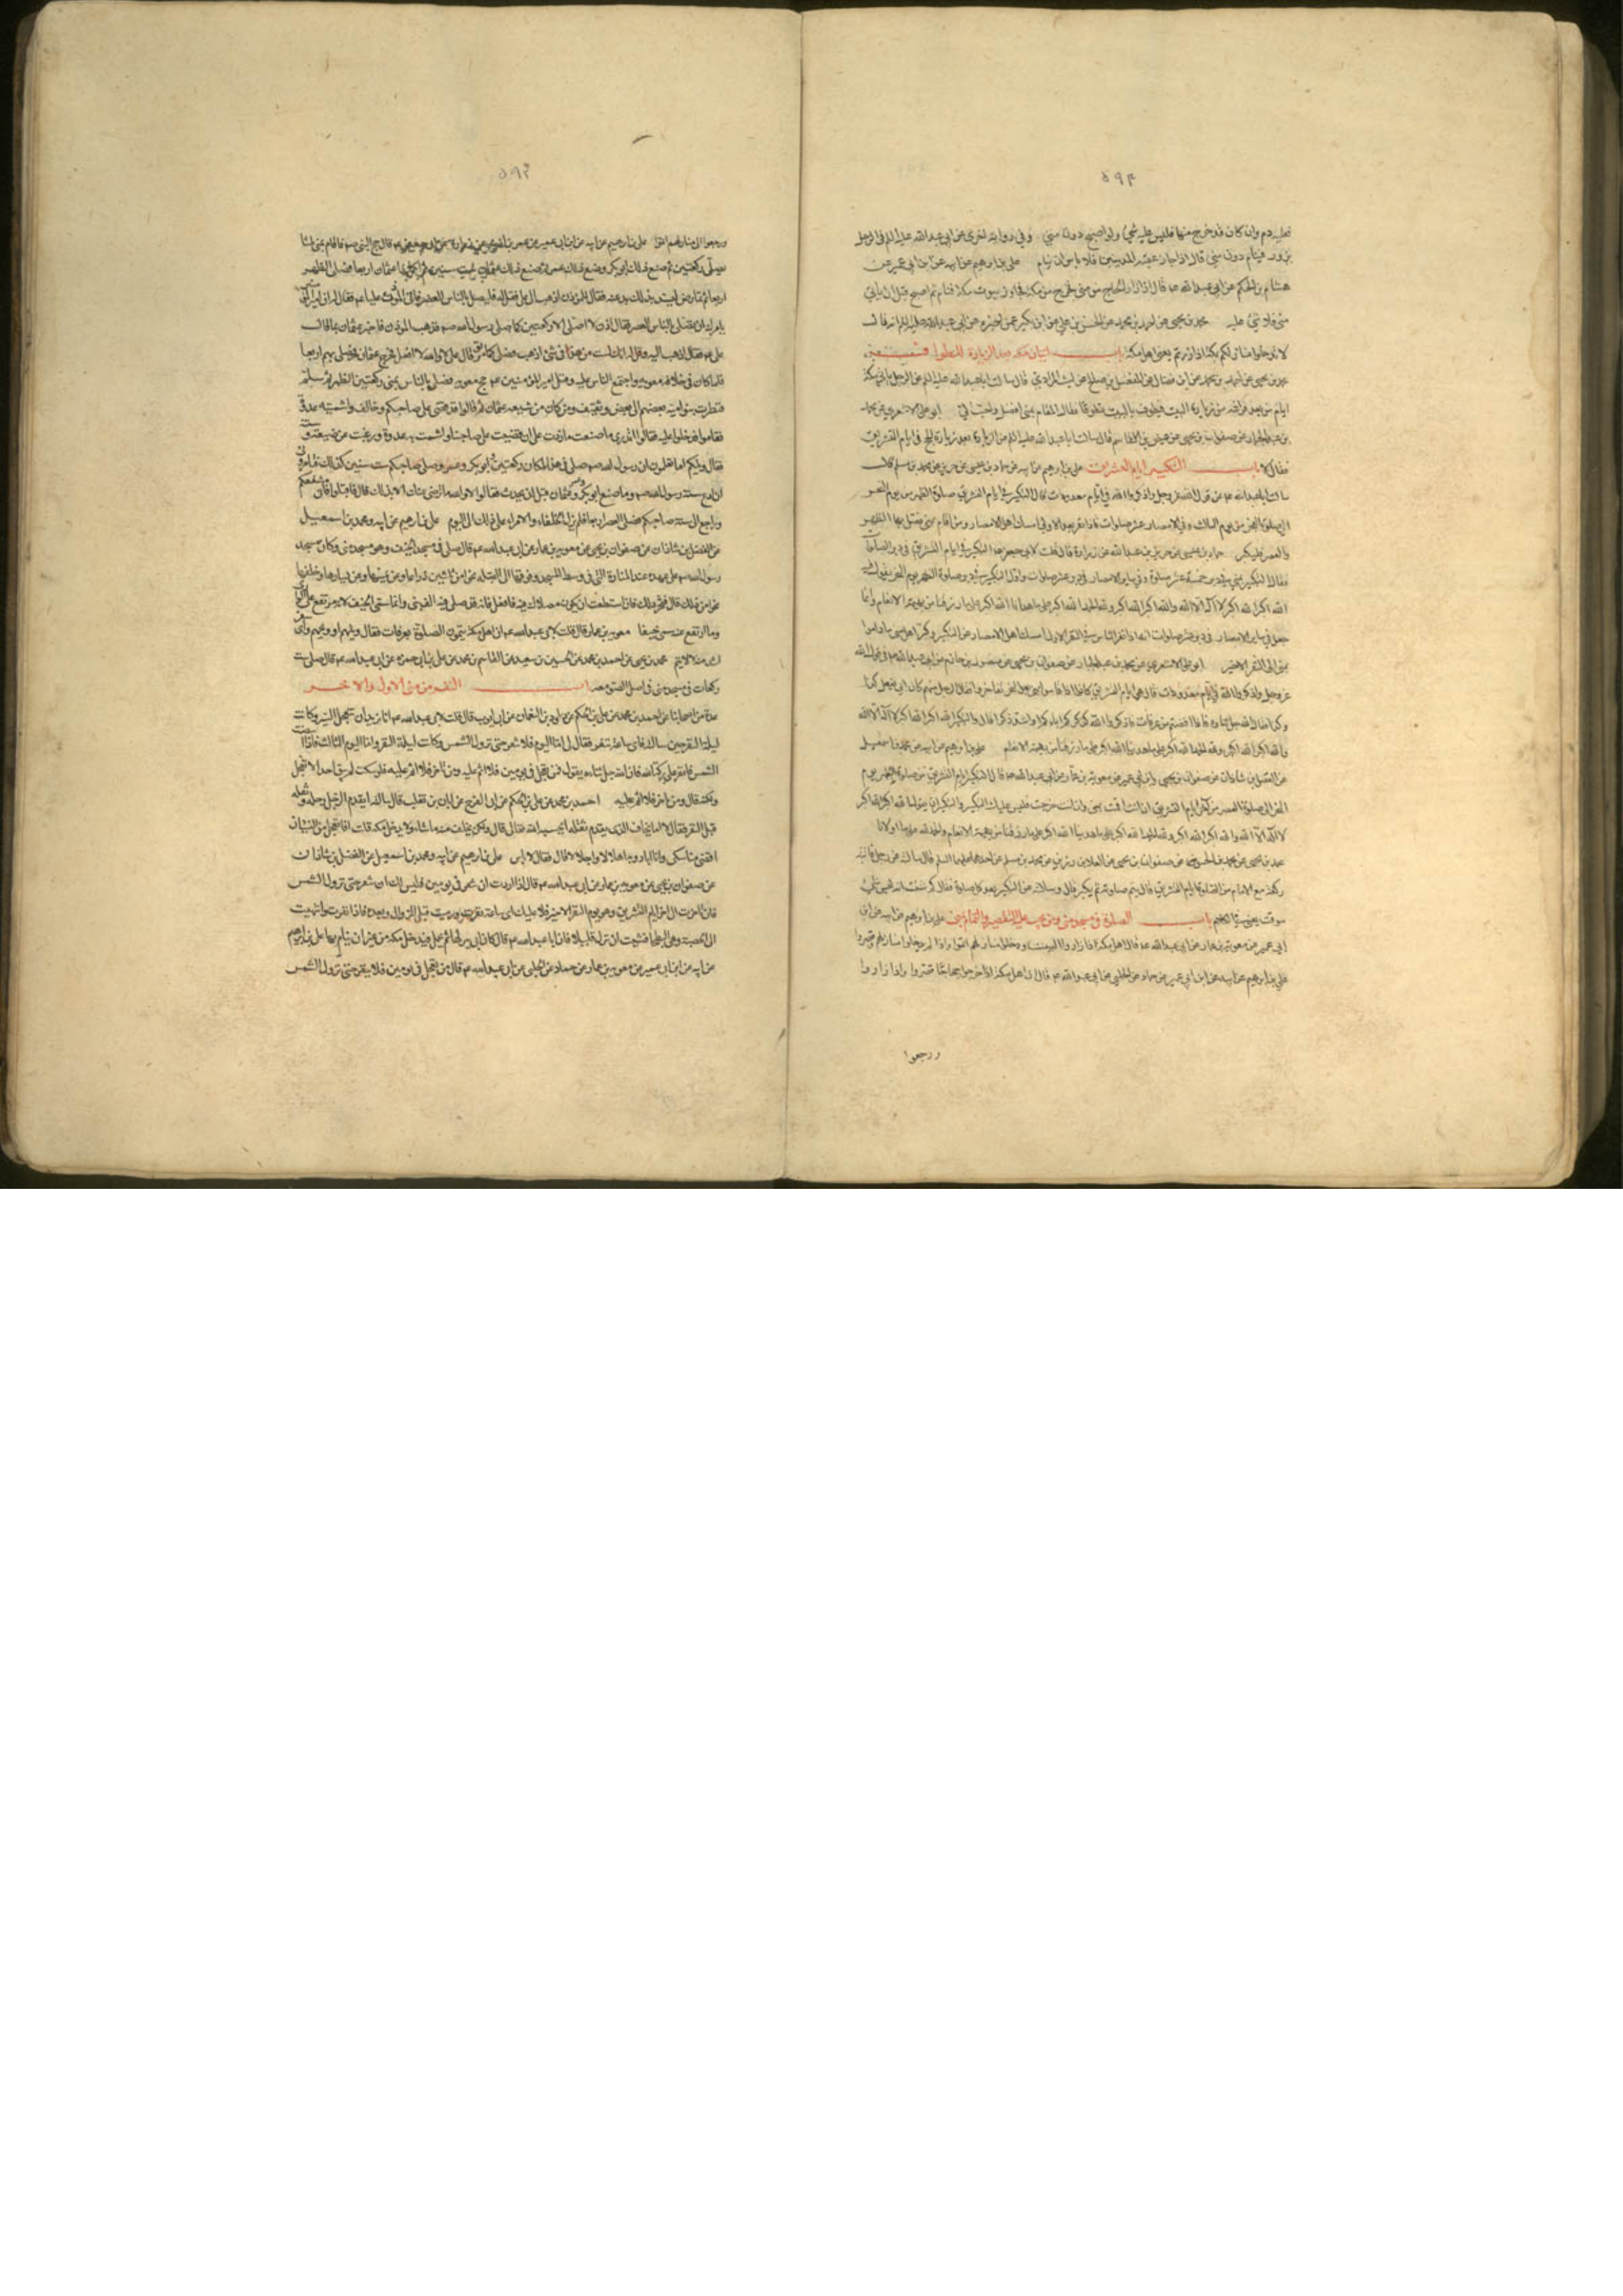 ٥٩٤
فعليه دم وان كان قد خرج منها فليس عليه شئ وان اصبح دون منى وفي رواية اخرى عن ابي عبد الله عليه السلم في الرجل
يزور فينام دون منى قال اذا جاز عقبة المدنيين فلا باس ان ينام علي بن ابرهيم عن ابيه عن ابن ابي عمير عن
هشام بن الحكم عن ابي عبد الله ع قال اذا زار الحاج من منى فخرج من مكة فجاوز بيوت مكة فنام ثم اصبح قبل ان ياتي
منى فلا شئ عليه محمد بن يحيى عن احمد بن محمد عن الحسن بن علي عن ابن بكير عمن اخبره عن ابي عبد الله عليه السلم انه قال
لا تدخلوا منازلكم بمكة اذا زرتم يعني اهل مكة باب اتيان مكة بعد الزيارة للطواف
محمد بن يحيى عن احمد بن محمد عن ابن فضال عن المفضل بن صالح عن ليث المرادي قال سالت ابا عبد الله عليه السلم عن الرجل ياتي مكة
ايام منى بعد فراغه من زيارة البيت فيطوف بالبيت تطوعا فقال المقام بمنى افضل واحب الي ابو علي الاشعري عن محمد
بن عبد الجبار عن صفوان بن يحيى عن عيص بن القاسم قال سالت ابا عبد الله عليه السلم عن الزيارة بعد زيارة الحج في ايام التشريق
فقال لا باب التكبير ايام التشريق علي بن ابرهيم عن ابيه عن حماد بن عيسى عن حريز عن محمد بن مسلم قال
سالت ابا عبد الله ع عن قول الله عز وجل واذكروا الله في ايام معدودات قال التكبير في ايام التشريق صلوة الظهر من يوم النحر
الى صلوة الفجر من يوم الثالث وفي الامصار عشر صلوات فاذا نفر بعد الاولى امسك اهل الامصار ومن اقام بمنى فصلى بها الظهر
والعصر فليكبر حماد بن عيسى عن حريز بن عبد الله عن زرارة قال قلت لابي جعفر ع التكبير في ايام التشريق في دبر الصلوات
فقال التكبير بمنى في دبر خمسة عشر صلوة وفي ساير الامصار في دبر عشر صلوات واول التكبير في دبر صلوة الظهر يوم النحر يقول فيه
الله اكبر الله اكبر لا اله الا الله والله اكبر الله اكبر ولله الحمد الله اكبر على ما هدانا الله اكبر على ما رزقنا من بهيمة الانعام وانما
جعل في ساير الامصار في دبر عشر صلوات انه اذا نفر الناس في النفر الاول امسك اهل الامصار عن التكبير وكبر اهل منى ما داموا
بمنى الى النفر الاخير ابو علي الاشعري عن محمد بن عبد الجبار عن صفوان بن يحيى عن منصور بن حازم عن ابي عبد الله ع في قول الله
عز وجل واذكروا الله في ايام معدودات قال هي ايام التشريق كانوا اذا اقاموا بمنى بعد النحر تفاخروا فقال الرجل منهم كان ابي يفعل كذا
وكذا فقال الله جل ثناؤه فاذا افضتم من عرفات فاذكروا الله كذكركم اباءكم او اشد ذكرا قال والتكبير الله اكبر الله اكبر لا اله الا الله
والله اكبر الله اكبر ولله الحمد الله اكبر على ما هدانا الله اكبر على ما رزقنا من بهيمة الانعام علي بن ابرهيم عن ابيه عن محمد بن اسمعيل
عن الفضل بن شاذان عن صفوان بن يحيى وابن ابي عمير عن معوية بن عمار عن ابي عبد الله ع قال التكبير ايام التشريق من صلوة الظهر يوم
النحر الى صلوة العصر من اخر ايام التشريق ان انت اقمت بمنى وان انت خرجت فليس عليك التكبير والتكبير ان يقول الله اكبر الله اكبر
لا اله الا الله والله اكبر الله اكبر ولله الحمد الله اكبر على ما هدانا الله اكبر على ما رزقنا من بهيمة الانعام والحمد لله على ما ابلانا
محمد بن يحيى عن محمد بن الحسين عن صفوان بن يحيى عن العلا بن رزين عن محمد بن مسلم عن احدهما عليهما السلم قال سالته عن رجل فاتته
ركعة مع الامام من الصلوة ايام التشريق قال يتم صلوته ثم يكبر قال وسالته عن التكبير بعد كل صلوة فقال كم شئت انه ليس شئ
موقت يعني في الكلام باب الصلوة في مسجد منى ومن يجب عليه التقصير والتمام بمنى علي بن ابرهيم عن ابيه عن ابن
ابي عمير عن معوية بن عمار عن ابي عبد الله ع قال اهل مكة اذا زاروا البيت ودخلوا منازلهم اتموا واذا لم يدخلوا منازلهم قصروا
علي بن ابرهيم عن ابيه عن ابن ابي عمير عن حماد عن الحلبي عن ابي عبد الله ع قال ان اهل مكة اذا خرجوا حجاجا قصروا واذا زاروا
ورجعوا
٥٩٣
ورجعوا الى منازلهم اتموا علي بن ابرهيم عن ابيه عن ابن ابي عمير عن عمر بن اذينة عن زرارة عن ابي جعفر ع قال حج النبي صم فاقام بمنى ثلثا
يصلي ركعتين ثم صنع ذلك ابو بكر وصنع ذلك عمر ثم صنع ذلك عثمان ست سنين ثم اكملها عثمان اربعا فصلى الظهر
اربعا ثم تمارض ليشد بذلك بدعته فقال للمؤذن اذهب الى علي فقل له فليصل بالناس العصر فاتى المؤذن عليا ع فقال له ان امير المؤمنين
يامرك ان تصلي بالناس العصر فقال اذن لا اصلي الا ركعتين كما صلى رسول الله صم فذهب المؤذن فاخبر عثمان بما قال
علي ع فقال اذهب اليه وقل له انك لست من هذا في شئ اذهب فصل كما تؤمر قال علي لا والله لا افعل فخرج عثمان فصلى بهم اربعا
فلما كان في خلافة معوية واجتمع الناس عليه وقتل امير المؤمنين ع حج معوية فصلى بالناس بمنى ركعتين الظهر ثم سلم
فنظرت بنو امية بعضهم الى بعض وثقيف ومن كان من شيعة عثمان ثم قالوا قد قضى على صاحبكم وخالف واشمت به عدوه
فقاموا فدخلوا عليه فقالوا اتدري ما صنعت ما زدت على ان قضيت على صاحبنا واشمت به عدوه ورغبت عن صنيعه وسنته
فقال ويلكم اما تعلمون ان رسول الله صم صلى في هذا المكان ركعتين وابو بكر وعمر وصلى صاحبكم ست سنين كذلك فتامروني
ان ادع سنة رسول الله صم وما صنع ابو بكر وعمر وعثمان قبل ان يحدث فقالوا لا والله ما نرضى عنك الا بذلك قال فاقبلوا فاني مشفعكم
وراجع الى سنة صاحبكم فصلى العصر اربعا فلم يزل الخلفاء والامراء على ذلك الى اليوم علي بن ابرهيم عن ابيه ومحمد بن اسمعيل
عن الفضل بن شاذان عن صفوان بن يحيى عن معوية بن عمار عن ابي عبد الله ع قال صل في مسجد الخيف وهو مسجد منى وكان مسجد
رسول الله صم على عهده عند المنارة التي في وسط المسجد وفوقها الى القبلة نحوا من ثلثين ذراعا وعن يمينها وعن يسارها وخلفها
نحوا من ذلك قال فتحر ذلك فان استطعت ان يكون مصلاك فيه فافعل فانه قد صلى فيه الف نبي وانما سمي الخيف لانه مرتفع عن الوادي
وما ارتفع عنه سمي خيفا معوية بن عمار قال قلت لابي عبد الله ع ان اهل مكة يتمون الصلوة بعرفات فقال ويلهم او ويحهم واي سفر
اشد منه لا لا يتم محمد بن يحيى عن احمد بن محمد عن الحسين بن سعيد عن القاسم بن محمد عن علي بن ابي حمزة عن ابي عبد الله ع قال صل ست
ركعات في مسجد منى في اصل الصومعة باب النفر من منى الاول والاخر
عدة من اصحابنا عن احمد بن محمد عن علي بن الحكم عن داود بن النعمان عن ابي ايوب قال قلت لابي عبد الله ع انا نريد ان نتعجل السير وكانت
ليلة النفر حين سالته فاي ساعة ننفر فقال لي اما اليوم فلا تنفر حتى تزول الشمس وكانت ليلة النفر واما اليوم الثالث فاذا ابيضت
الشمس فانفر على بركة الله فان الله جل ثناءه يقول فمن تعجل في يومين فلا اثم عليه ومن تاخر فلا اثم عليه فلو سكت لم يبق احد الا تعجل
ولكنه قال ومن تاخر فلا اثم عليه احمد بن محمد عن علي بن الحكم عن ابي الفرج عن ابان بن تغلب قال سالته ايقدم الرجل رحله وثقله
قبل النفر فقال لا اما يخاف الذي يقدم ثقله ان يحبسه الله تعالى قال ولكن يخلف منه ما شاء ولا يدخل مكة قلت افاتعجل من النسيان
اقضي مناسكي وانا ابادر به اهلالا واحلالا قال فقال لا باس علي بن ابرهيم عن ابيه ومحمد بن اسمعيل عن الفضل بن شاذان
عن صفوان بن يحيى عن معوية بن عمار عن ابي عبد الله ع قال اذا اردت ان تنفر في يومين فليس لك ان تنفر حتى تزول الشمس
فان تاخرت الى اخر ايام التشريق وهو يوم النفر الاخير فلا عليك اي ساعة نفرت ورميت قبل الزوال او بعده فاذا نفرت وانتهيت
الى الحصبة وهي البطحا فشئت ان تنزل قليلا فان ابا عبد الله ع قال كان ابي ينزلها ثم يحمل فيدخل مكة من غير ان ينام بها علي بن ابرهيم
عن ابيه عن ابن ابي عمير عن معوية بن عمار عن حماد عن الحلبي عن ابي عبد الله ع قال من تعجل في يومين فلا ينفر حتى تزول الشمس